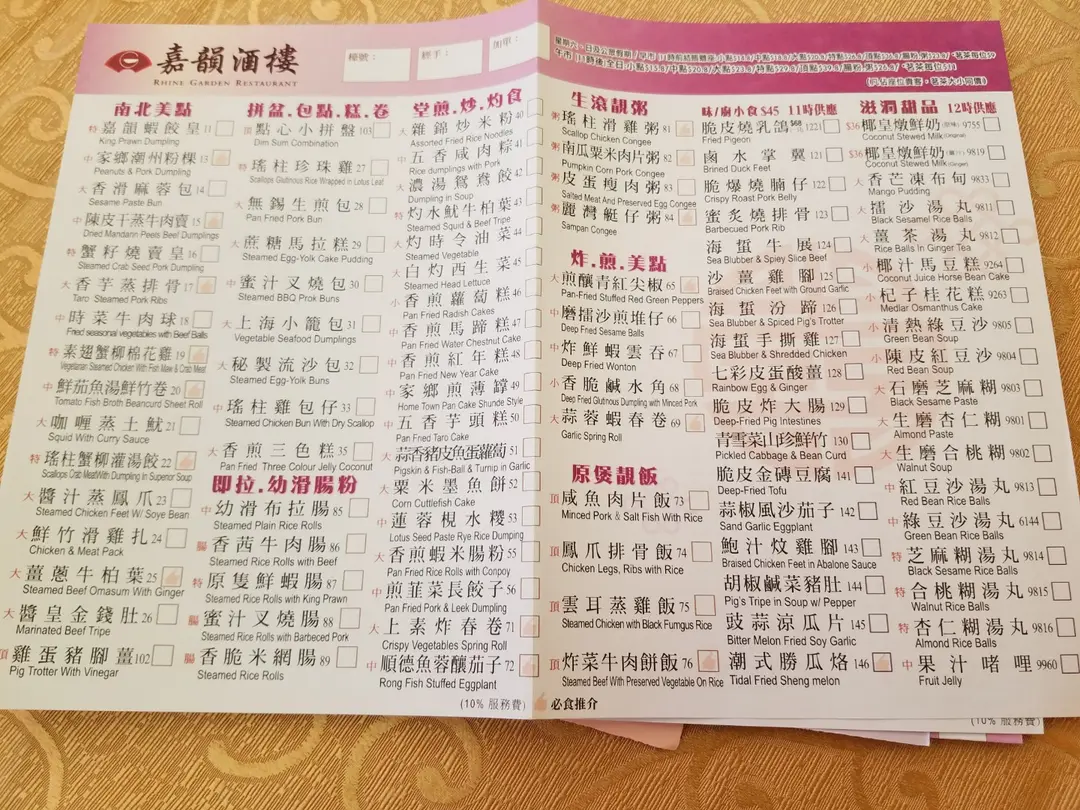 嘉韻酒樓
RHINE GARDEN RESTAURANT
檯號：
經手：
加單：
南北美點
特 嘉韻蝦餃皇 11
King Prawn Dumpling
中 家鄉潮州粉粿 13
Peanuts & Pork Dumpling
大 香滑麻蓉包 14
Sesame Paste Bun
中 陳皮干蒸牛肉賣 15
Dried Mandarin Peets Beef Dumplings
特 蟹籽燒賣皇 16
Steamed Crab Seed Pork Dumpling
大 香芋蒸排骨 17
Taro Steamed Pork Ribs
中 時菜牛肉球 18
Fried seasonal vegetables with Beef Balls
特 素翅蟹柳棉花雞 19
Vegetarian Steamed Chicken With Fish Maw & Crab Meat
中 鮮茄魚湯鮮竹卷 20
Tomato Fish Broth Beancurd Sheet Roll
大 咖喱蒸土魷 21
Squid With Curry Sauce
特 瑤柱蟹柳灌湯餃 22
Scallops Crab Meat With Dumpling in Superior Soup
大 醬汁蒸鳳爪 23
Steamed Chicken Feet W/ Soye Bean
大 鮮竹滑雞扎 24
Chicken & Meat Pack
大 薑蔥牛柏葉 25
Steamed Beef Omasum With Ginger
大 醬皇金錢肚 26
Marinated Beef Tripe
頂 雞蛋豬腳薑 102
Pig Trotter With Vinegar
拼盆．包點．糕．卷
頂 點心小拼盤 103
Dim Sum Combination
特 瑤柱珍珠雞 27
Scallops Glutinous Rice Wrapped in Lotus Leaf
大 無錫生煎包 28
Pan Fried Pork Bun
大 蔗糖馬拉糕 29
Steamed Egg-Yolk Cake Pudding
中 蜜汁叉燒包 30
Steamed BBQ Prok Buns
大 上海小籠包 31
Vegetable Seafood Dumplings
大 秘製流沙包 32
Steamed Egg-Yolk Buns
中 瑤柱雞包仔 33
Steamed Chicken Bun With Dry Scallop
大 香煎三色糕 35
Pan Fried Three Colour Jelly Coconut
即拉．幼滑腸粉
中 幼滑布拉腸 85
Steamed Plain Rice Rolls
腸 香茜牛肉腸 86
Steamed Rice Rolls with Beef
特 原隻鮮蝦腸 87
Steamed Rice Rolls with King Prawn
腸 蜜汁叉燒腸 88
Steamed Rice Rolls with Barbeced Pork
腸 香脆米網腸 89
Steamed Rice Rolls
堂煎．炒．灼食
大 雜錦炒米粉 40
Assorted Fried Rice Noodles
中 五香咸肉粽 41
Rice dumplings with Pork
大 濃湯鴛鴦餃 42
Dumpling in Soup
特 灼水魷牛柏葉 43
Steamed Squid & Beef Tripe
大 灼時令油菜 44
Steamed Vegetable
大 白灼西生菜 45
Steamed Head Lettuce
小 香煎蘿蔔糕 46
Pan Fried Radish Cakes
中 香煎馬蹄糕 47
Pan Fried Water Chestnut Cake
中 香煎紅年糕 48
Pan Fried New Year Cake
中 家鄉煎薄罉 49
Home Town Pan Cake Shunde Style
中 五香芋頭糕 50
Pan Fried Taro Cake
大 蒜香豬皮魚蛋蘿蔔 51
Pigskin & Fish-Ball & Turnip in Garlic
大 粟米墨魚餅 52
Corn Cuttlefish Cake
中 蓮蓉梘水糭 53
Lotus Seed Paste Rye Rice Dumping
大 香煎蝦米腸粉 55
Pan Fried Rice Rolls with Conpoy
中 煎韮菜長餃子 56
Pan Fried Pork & Leek Dumpling
大 上素炸春卷 71
Crispy Vegetables Spring Roll
中 順德魚蓉釀茄子 72
Rong Fish Stuffed Eggplant
(10% 服務費)
生滾靚粥
粥 瑤柱滑雞粥 81
Scallop Chicken Congee
粥 南瓜粟米肉片粥 82
Pumpkin Corn Pork Congee
粥 皮蛋瘦肉粥 83
Salted Meat And Preserved Egg Congee
粥 麗灣艇仔粥 84
Sampan Congee
炸．煎．美點
大 煎釀青紅尖椒 65
Pan-Fried Stuffed Red Green Peppers
中 磨擂沙煎堆仔 66
Deep Fried Sesame Balls
中 炸鮮蝦雲吞 67
Deep Fried Wonton
小 香脆鹹水角 68
Deep Fried Glutinous Dumpling with Minced Pork
大 蒜蓉蝦春卷 69
Garlic Spring Roll
原煲靚飯
頂 咸魚肉片飯 73
Minced Pork & Salt Fish With Rice
頂 鳳爪排骨飯 74
Chicken Legs, Ribs with Rice
頂 雲耳蒸雞飯 75
Steamed Chicken with Black Fumgus Rice
頂 炸菜牛肉餅飯 76
Steamed Beef With Preserved Vegetable On Rice
必食推介
味/廚小食 $45 11時供應
脆皮燒乳鴿 1221
Fried Pigeon
鹵水掌翼 121
Brined Duck Feet
脆爆燒腩仔 122
Crispy Roast Pork Belly
蜜炙燒排骨 123
Barbecued Pork Rib
海蜇牛展 124
Sea Blubber & Spiey Slice Beef
沙薑雞腳 125
Braised Chicken Feet with Ground Garlic
海蜇汾蹄 126
Sea Blubber & Spiced Pig's Trotter
海蜇手撕雞 127
Sea Blubber & Shredded Chicken
七彩皮蛋酸薑 128
Rainbow Egg & Ginger
脆皮炸大腸 129
Deep-Fried Pig Intestines
青雪菜山珍鮮竹 130
Pickled Cabbage & Bean Curd
脆皮金磚豆腐 141
Deep-Fried Tofu
蒜椒風沙茄子 142
Sand Garlic Eggplant
鮑汁炆雞腳 143
Braised Chicken Feet in Abalone Sauce
胡椒鹹菜豬肚 144
Pig's Tripe in Soup w/ Pepper
豉蒜涼瓜片 145
Bitter Melon Fried Soy Garlic
潮式勝瓜烙 146
Tidal Fried Sheng melon
滋潤甜品 12時供應
$36 椰皇燉鮮奶 (原味) 9755
Coconut Stewed Milk (Original)
$36 椰皇燉鮮奶 9819
Coconut Stewed Milk
大 香芒凍布甸 9833
Mango Pudding
大 擂沙湯丸 9811
Black Sesamel Rice Balls
大 薑茶湯丸 9812
Rice Balls In Ginger Tea
小 椰汁馬豆糕 9264
Coconut Juice Horse Bean Cake
小 杞子桂花糕 9263
Medlar Osmanthus Cake
小 清熱綠豆沙 9805
Green Bean Soup
小 陳皮紅豆沙 9804
Red Bean Soup
大 石磨芝麻糊 9803
Black Sesame Paste
大 生磨杏仁糊 9801
Almond Paste
大 生磨合桃糊 9802
Walnut Soup
中 紅豆沙湯丸 9813
Red Bean Rice Balls
中 綠豆沙湯丸 6144
Green Bean Rice Balls
特 芝麻糊湯丸 9814
Black Sesame Rice Balls
特 合桃糊湯丸 9815
Walnut Rice Balls
特 杏仁糊湯丸 9816
Almond Rice Balls
中 果汁啫喱 9960
Fruit Jelly
(10% 服務費)